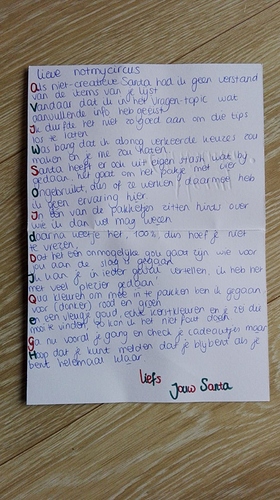 Lieve notmycircus
Als niet-creatieve Santa had ik geen verstand
van de items van je lijst
Vandaar dat ik in het vragen-topic wat
aanvullende info heb geëist
Ik durfde het niet zo goed aan om die tips
los te laten
Was bang dat ik alsnog verkeerde keuzes zou
maken en je me zou haten
Santa heeft er ook uit eigen stash wat bij
gedaan, het gaat om het pakje met
Ongebruikt, dus of ze werken daarmee heb
ik geen ervaring hier
In een van de pakketjes zitten hints over
wie ik dan wel mag wezen
daarna weet je het, 100% dus hoef je niet
te vrezen,
Dat het een onmogelijke gou gaat zijn wie voor
jou aan de slag is gegaan
Ik kan je in ieder geval vertellen, ik heb het
met veel plezier gedaan
Qua kleuren om mee in te pakken ben ik gegaan
voor (donker) rood en groen
en een vleugje goud, echte kerstkleuren en je zei dit
mooi te vinden, zo kan ik het niet fout doen
Ga nu vooral je gang en check je cadeautjes maar
Hoop dat je kunt melden dat je blij bent als je
bent helemaal klaar
liefs
Jouw Santa